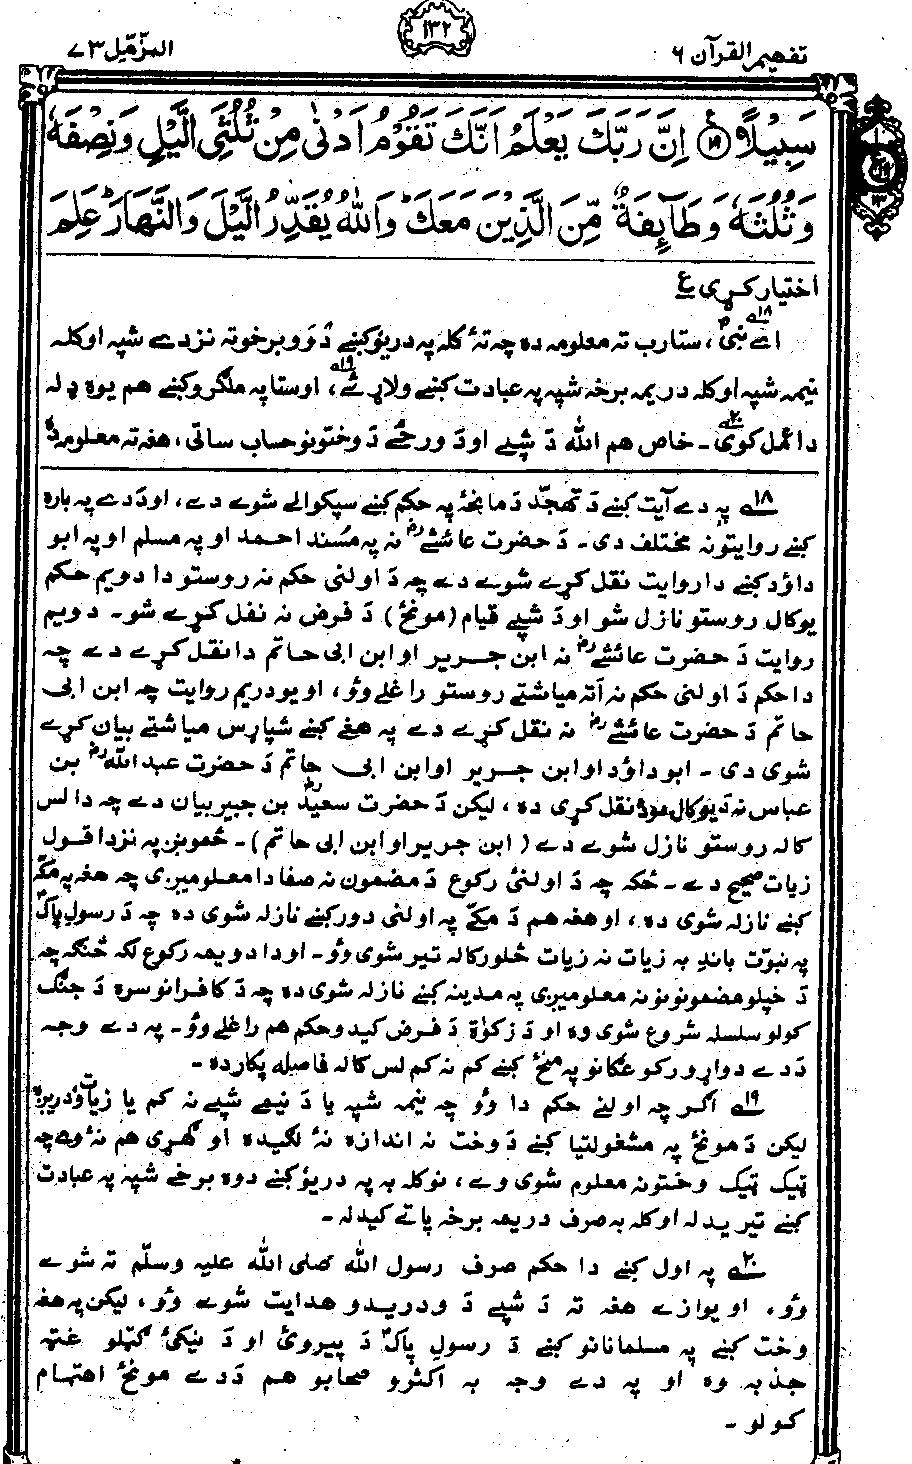 تفهيم القرآن ۶
۱۳۲
المزّمّل ۷۳
سَبِيْلًا ﴿۱۹﴾ اِنَّ رَبَّكَ يَعْلَمُ اَنَّكَ تَقُوْمُ اَدْنٰى مِنْ ثُلُثَىِ الَّيْلِ وَنِصْفَهٗ
وَثُلُثَهٗ وَطَآئِفَةٌ مِّنَ الَّذِيْنَ مَعَكَ ؕ وَاللّٰهُ يُقَدِّرُ الَّيْلَ وَالنَّهَارَ ؕ عَلِمَ
اختيار کړی ع
اے نبیؐ، ستا رب ته معلومه ده چه تۀ کله په دريؤ کښے دَ وو برخو ته نزدے شپه او کله
نيمه شپه او کله دريمه برخه شپه په عبادت کښے ولاړ ئے، او ستا په ملګرو کښے هم يوه ډله
دا عمل کوی۔ خاص هم الله دَ شپے او دَ ورځے دَ وختونو حساب ساتی، هغه ته معلومه ده
۱۸ په دے آيت کښے دَ تهجّد دَ مانځۀ په حکم کښے سپکوالے شوے دے، او دَ دے په باره
کښے روايتونه مختلف دی۔ دَ حضرت عائشےرض نه په مسند احمد او په مسلم او په ابو
داؤد کښے دا روايت نقل کړے شوے دے چه دَ اولنی حکم نه روستو دا دويم حکم
يو کال روستو نازل شو او دَ شپے قيام (مونځ) دَ فرض نه نفل کړے شو۔ دويم
روايت دَ حضرت عائشےرض نه ابن جرير او ابن ابی حاتم دا نقل کړے دے چه
دا حکم دَ اولنی حکم نه اته مياشتے روستو راغلے وؤ، او يو دريم روايت چه ابن ابی
حاتم دَ حضرت عائشےرض نه نقل کړے دے په هغے کښے شپاړس مياشتے بيان کړے
شوی دی۔ ابو داؤد او ابن جرير او ابن ابی حاتم دَ حضرت عبد اللهرض بن
عباس نه دَ يو کال موده نقل کړی ده، ليکن دَ حضرت سعيدرض بن جبير بيان دے چه دا لس
کاله روستو نازل شوے دے (ابن جرير او ابن ابی حاتم)۔ څمونږ په نزد دا قول
زيات صحيح دے۔ ځکه چه دَ اولنئ رکوع دَ مضمون نه صفا دا معلوميږی چه هغه په مکّه
کښے نازله شوی ده، او هغه هم دَ مکے په اولنی دور کښے نازله شوی ده چه دَ رسولِ پاکؐ
په نبوّت باندِ به زيات نه زيات څلور کاله تير شوی وؤ۔ او دا دويمه رکوع لکه څنګه چه
دَ خپلو مضمونونو نه معلوميږی په مدينه کښے نازله شوی ده چه دَ کافرانو سره دَ جنګ
کولو سلسله شروع شوی وه او دَ زکوٰة دَ فرض کيدو حکم هم راغلے وؤ۔ په دے وجه
دَ دے دواړو رکوعګانو په منځ کښے کم نه کم لس کاله فاصله پکار ده۔
۱۹ اګر چه اولنے حکم دا وؤ چه نيمه شپه يا دَ نيمے شپے نه کم يا زيات وُدريږه
ليکن دَ مونځ په مشغولتيا کښے دَ وخت نه اندازه نۀ لګيده او ګهړی هم نۀ وے چه
ټيک ټيک وختونه معلوم شوی وے، نو کله به په دريؤ کښے دوه برخے شپه په عبادت
کښے تيريدله او کله به صرف دريمه برخه پاتے کيدله۔
۲۰ په اول کښے دا حکم صرف رسول الله صلی الله عليه وسلّم ته شوے
وؤ، او يوازے هغه ته دَ شپے دَ ودريدو هدايت شوے وؤ، ليکن په هغه
وخت کښے په مسلمانانو کښے دَ رسولِ پاکؐ دَ پيروئ او دَ نيکئ ګټلو غټه
جذبه وه او په دے وجه به اکثرو صحابو هم دَ دے مونځ اهتمام
کولو۔